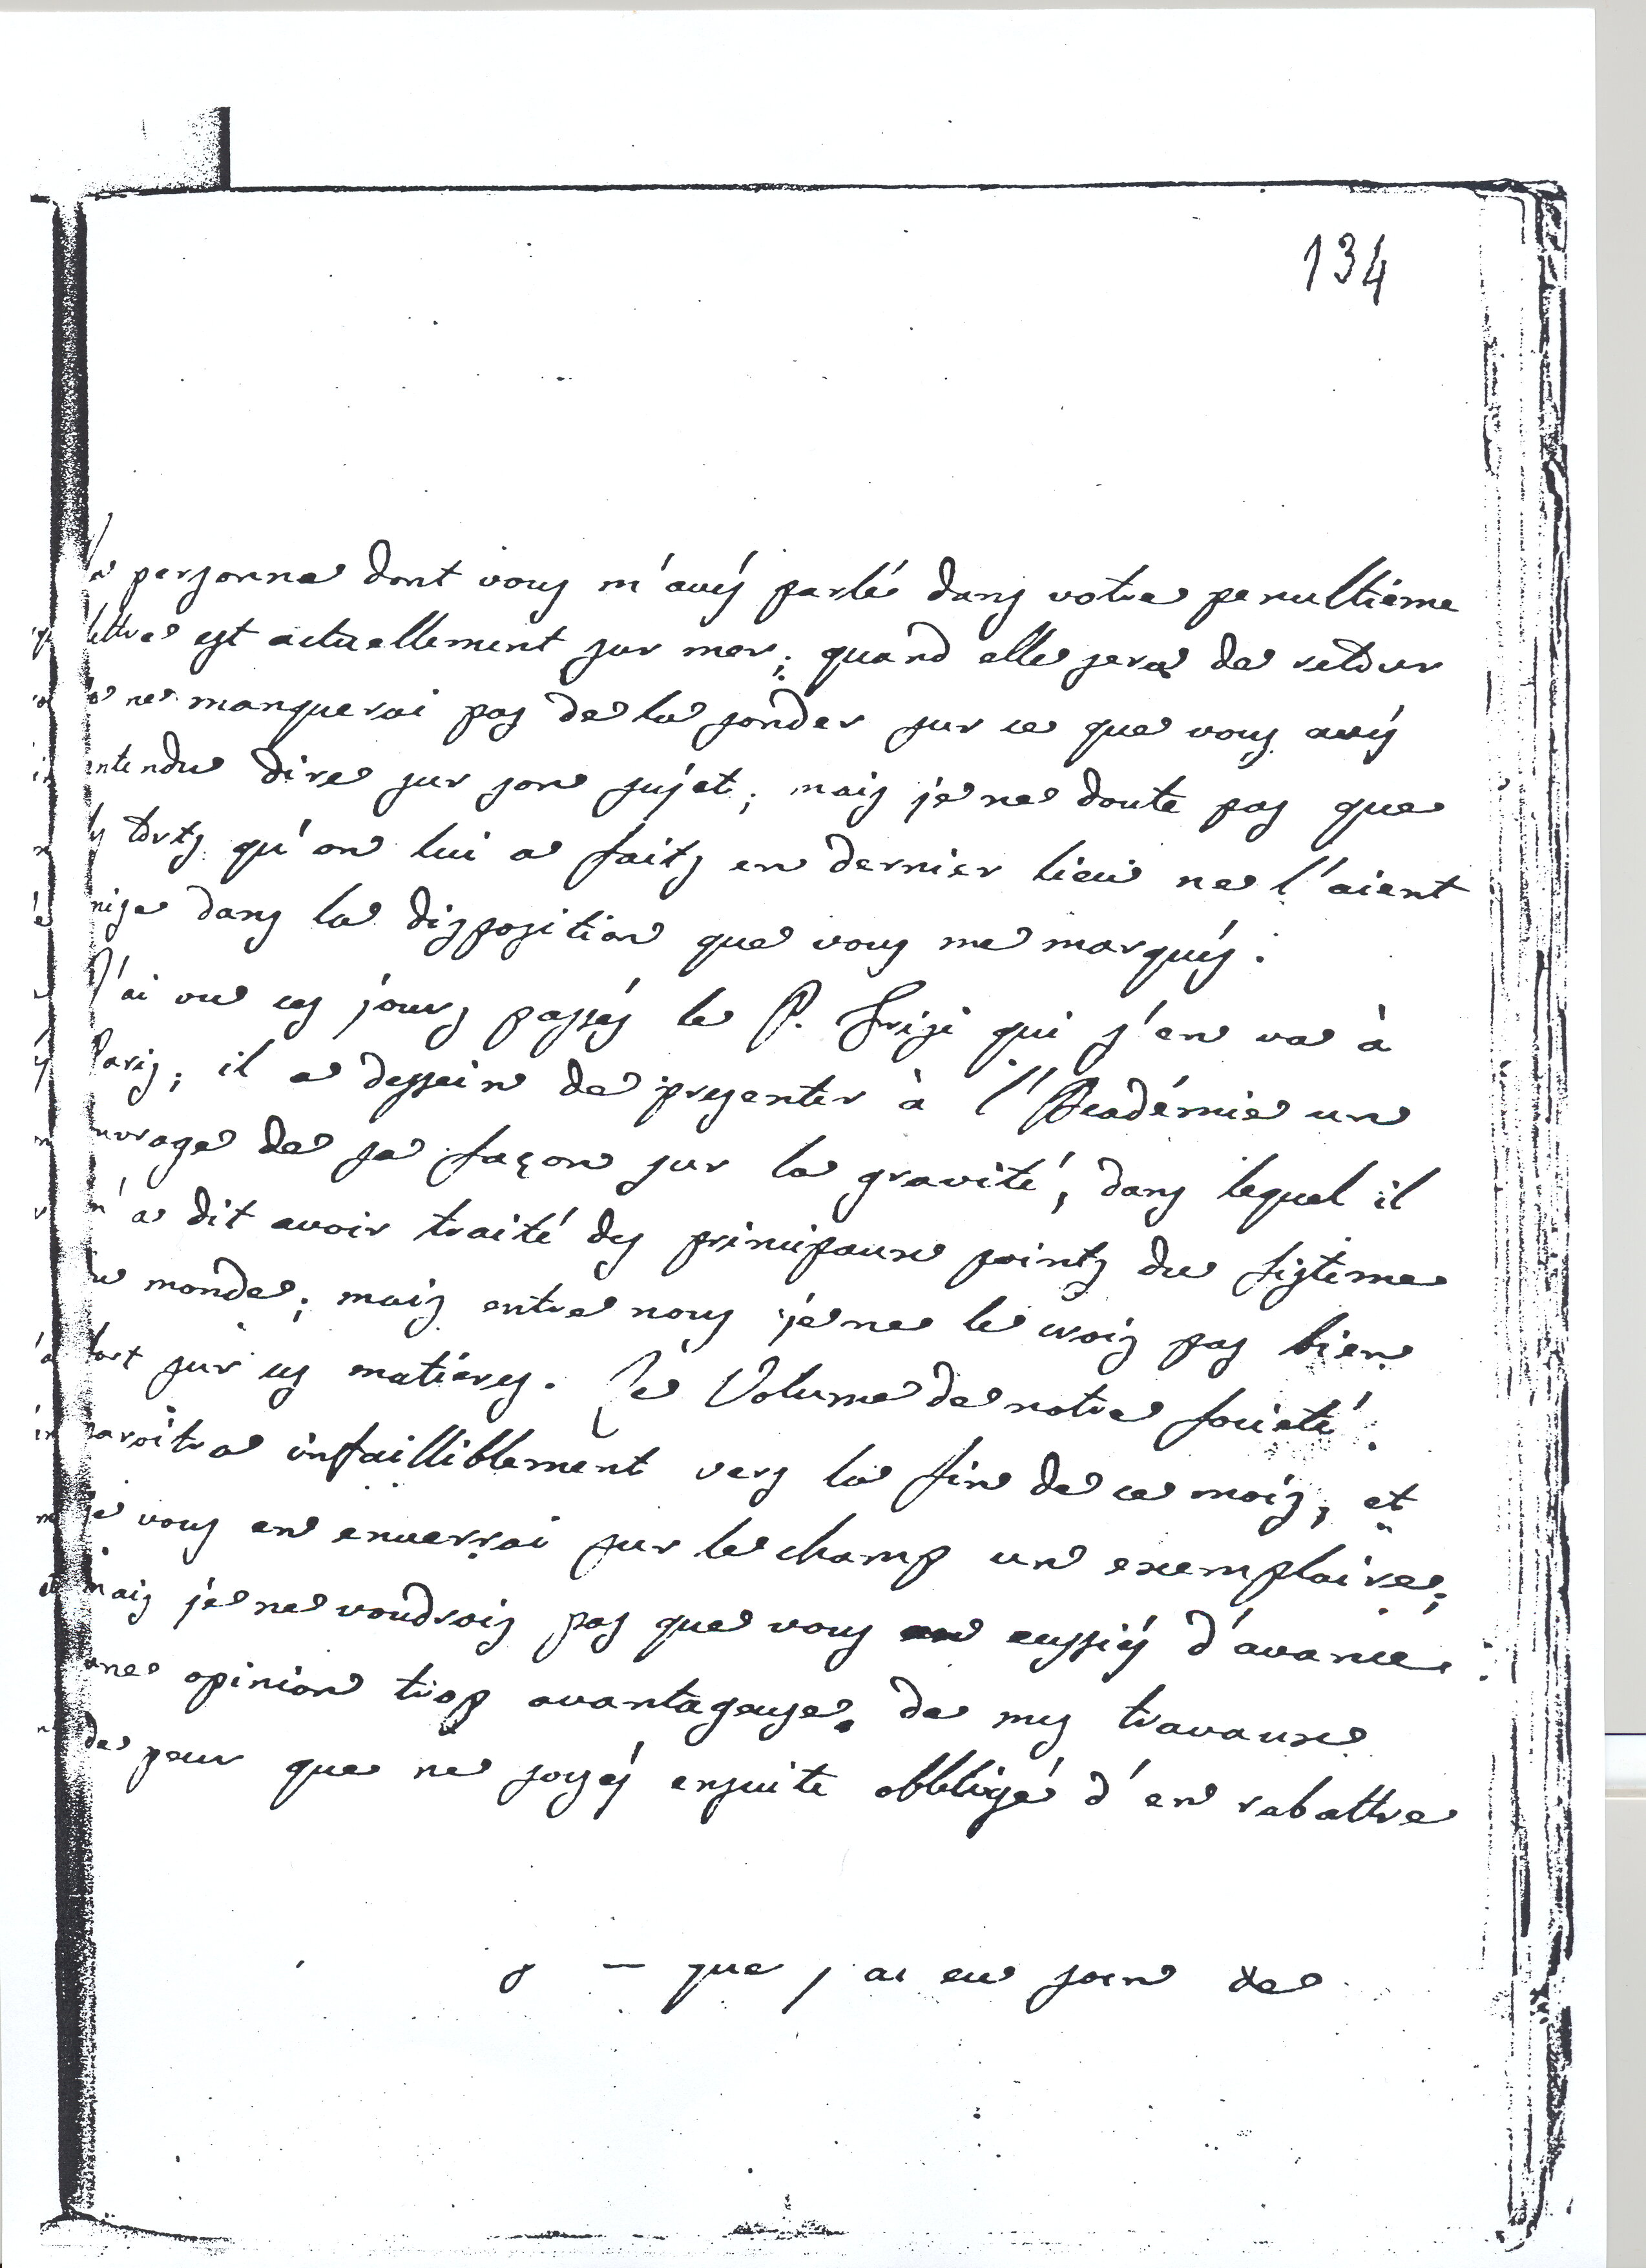 134
La personne dont vous m'avés parlé dans votre penultiéme
lettre est actuellement sur mer; quand elle sera de retour
je ne manquerai pas de la sonder sur ce que vous avés
entendu dire sur son sujet; mais je ne doute pas que
les torts qu'on lui a faits en dernier lieu ne l'aient
mise dans la disposition que vous me marqués.
J'ai vu ces jours passés le P. Frisi qui s'en va à
Paris; il a dessein de presenter à l'Académie un
ouvrage de sa façon sur la gravité, dans lequel il
m'a dit avoir traité des principaux points du sistéme
du monde; mais entre nous je ne le crois pas bien
fort sur ces matiéres. Le Volume de notre societé
paroitra infailliblement vers la fin de ce mois, et
je vous en enverrai sur le champ un exemplaire;
mais je ne voudrois pas que vous eussiés d'avance
une opinion trop avantageuse de mes travaux
de peur que ne soyés ensuite obbligé d'en rabattre
que j'ai eu soin de